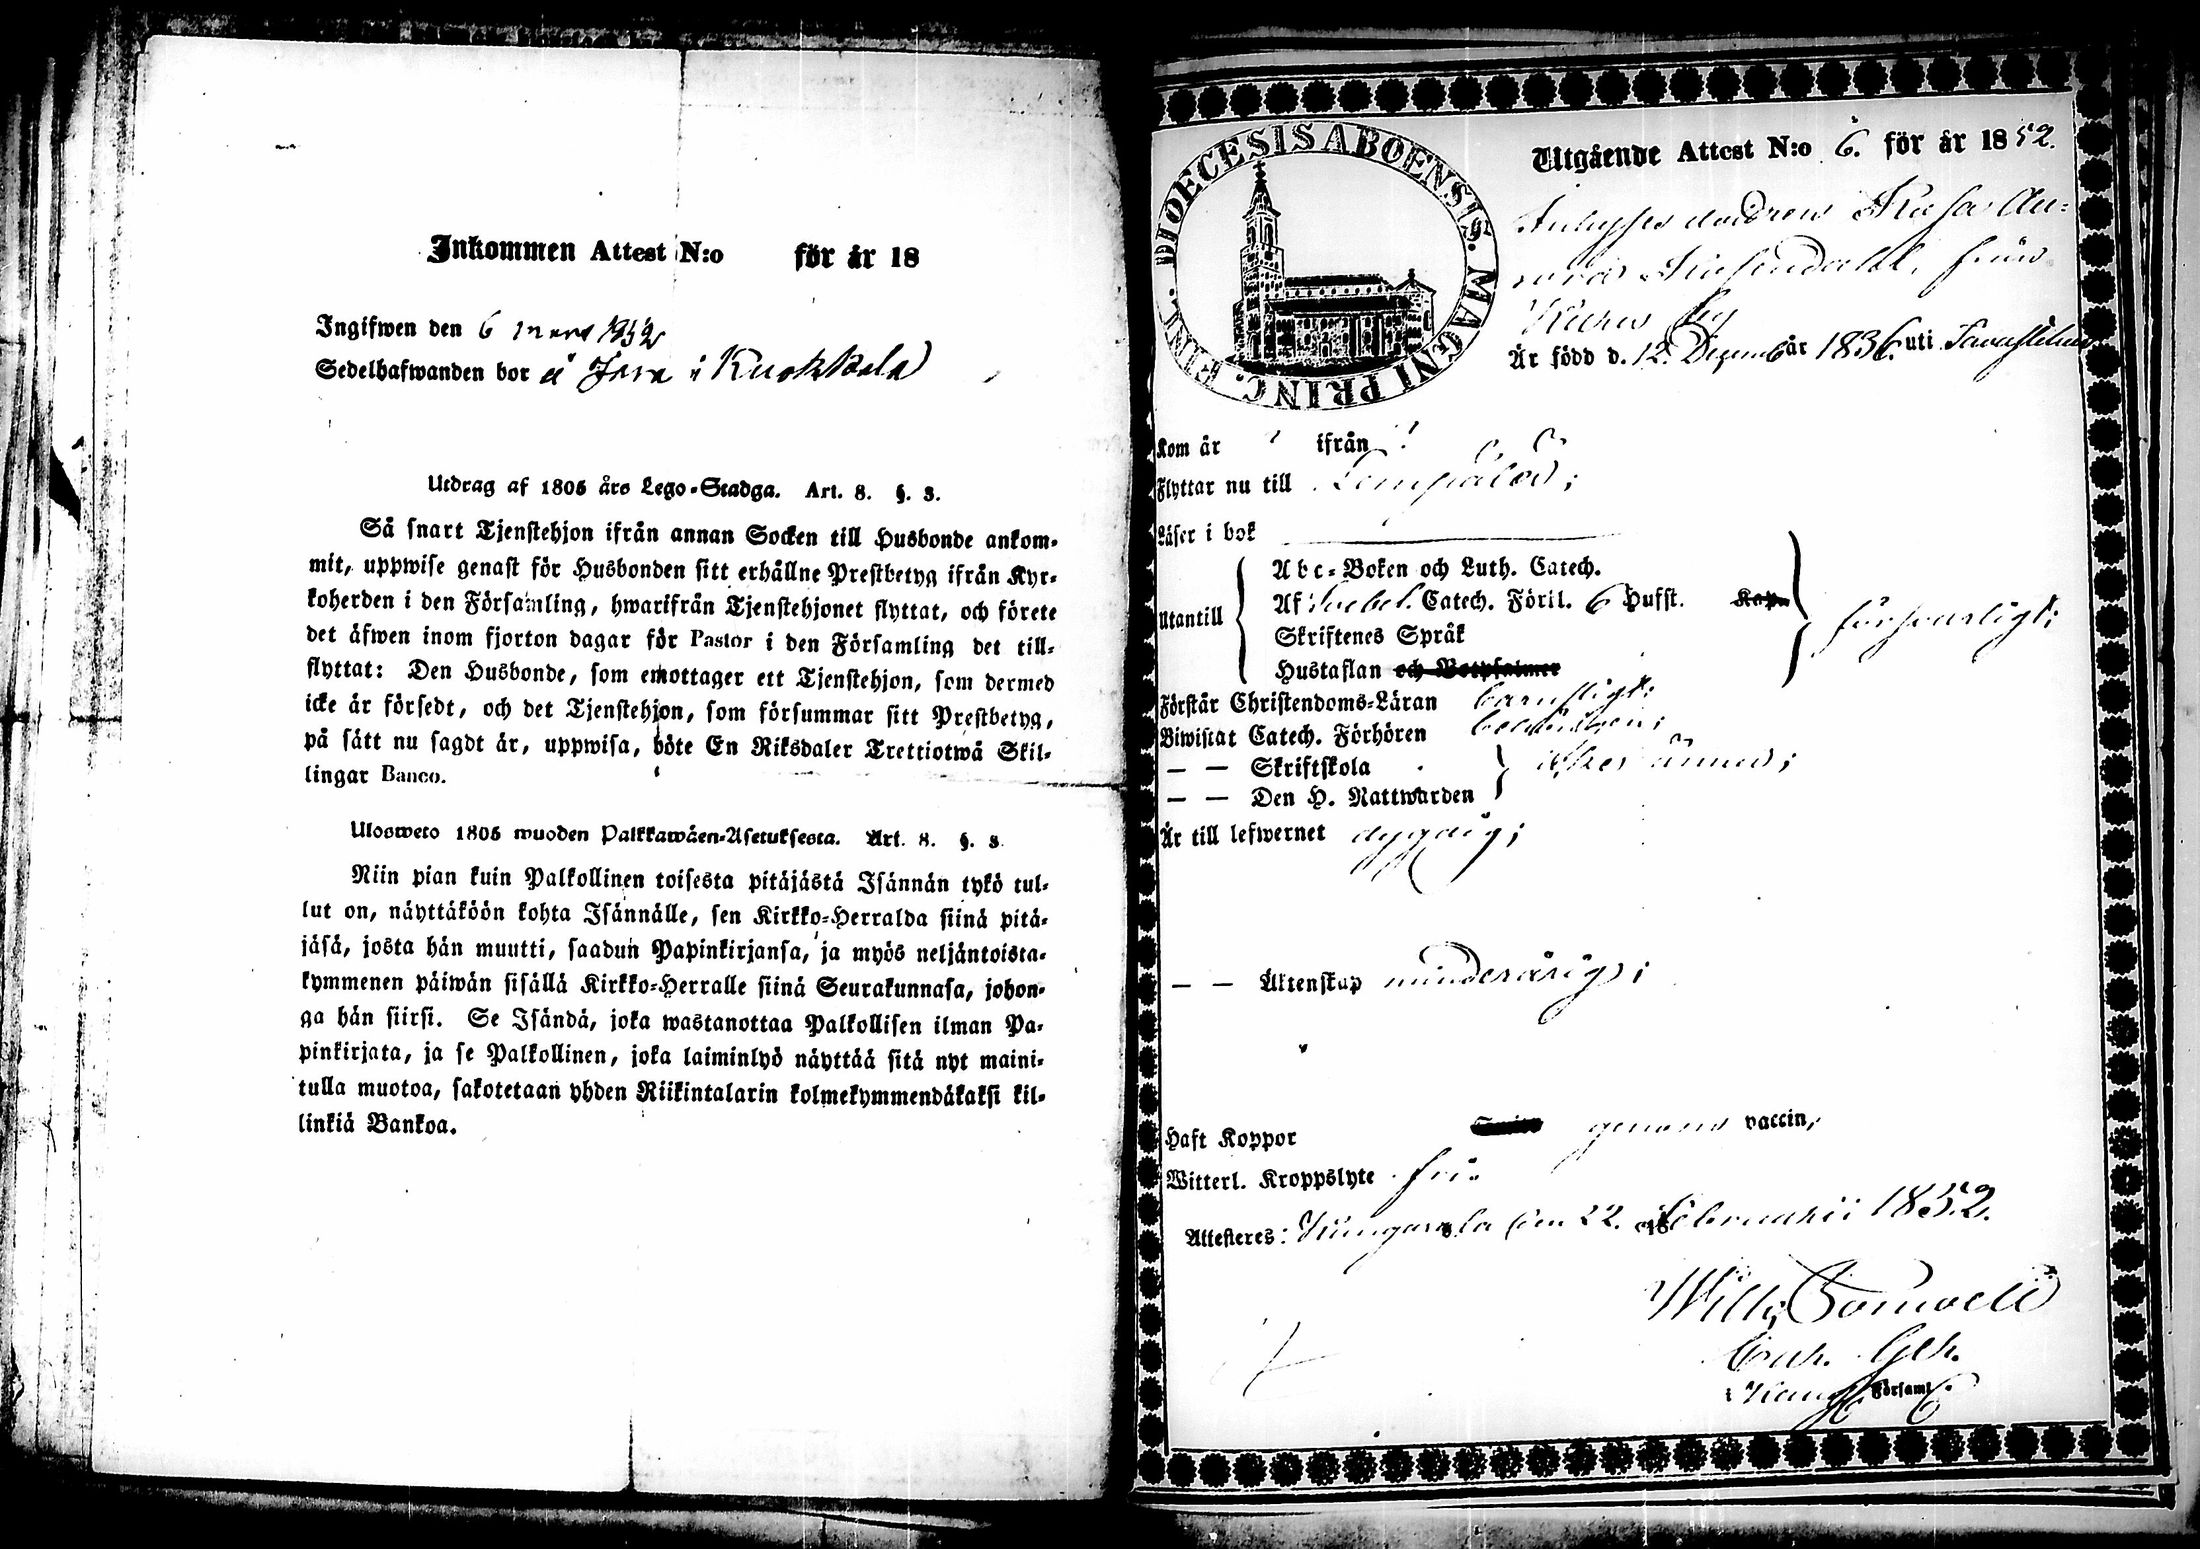 Inkommen Attest N:o för år 18
Ingifwen den 6 mars 1852
Sedelhafwanden bor å Jern i Kuokkala
Utdrag af 1805 års Lego-Stadga. Art. 8. §. 3.
Så snart Tjenstehjon ifrån annan Socken till Husbonde ankom-
mit, uppwise genast för Husbonden sitt erhållne Prestbetyg ifrån Kyr-
koherden i den Församling, hwarifrån Tjenstehjonet flyttat, och förete
det äfwen inom fjorton dagar för Pastor i den Församling det till-
flyttat: Den Husbonde, som emottager ett Tjenstehjon, som dermed
icke är försedt, och det Tjenstehjon, som försummar sitt Prestbetyg,
på sätt nu sagdt är, uppwisa, böte En Riksdaler Trettiotwå Skil-
lingar Banco.
Ulosweto 1805 wuoden Palkkawäen-Asetuksesta. Art. 8. §. 3.
Niin pian kuin Palkollinen toisesta pitäjästä Isännän tykö tul-
lut on, näyttäköön kohta Isännälle, sen Kirkko-Herralda siinä pitä-
jäsä, josta hän muutti, saadun Papinkirjansa, ja myös neljäntoista-
kymmenen päiwän sisällä Kirkko-Herralle siinä Seurakunnasa, johon-
ga hän siirsi. Se Isändä, joka wastanottaa Palkollisen ilman Pa-
pinkirjata, ja se Palkollinen, joka laiminlyö näyttää sitä nyt maini-
tulla muotoa, sakotetaan yhden Riikintalarin kolmekymmendäkaksi kil-
linkiä Bankoa.
DIOECESIS ABOENSIS. MAGNI PRINC. FINL.
Utgående Attest N:o 6. för år 1852.
Kajsa
från
by
Är född d. 12 Decemb år 1836. uti Tavastehus
Kom år ? ifrån ?
Flyttar nu till Lempälä;
Läser i bok
Utantill
Abc-Boken och Luth. Catech.
Af Svebel. Catech. Förkl. 6 Hufst. Kap.
Skriftenes Språk
Hustaflan och Botpsalmer
försvarligt;
Förstår Christendoms-Läran barnsligt;
Biwistat Catech. Förhören
— — Skriftskola
— — Den H. Nattwarden
icke ännu;
Är till lefwernet dygdig;
— — Äktenskap minderårig;
Haft Koppor genom vaccin,
Witterl. Kroppslyte fri.
Attesteres: Kangasala den 22. Februarii 1852.
Församl